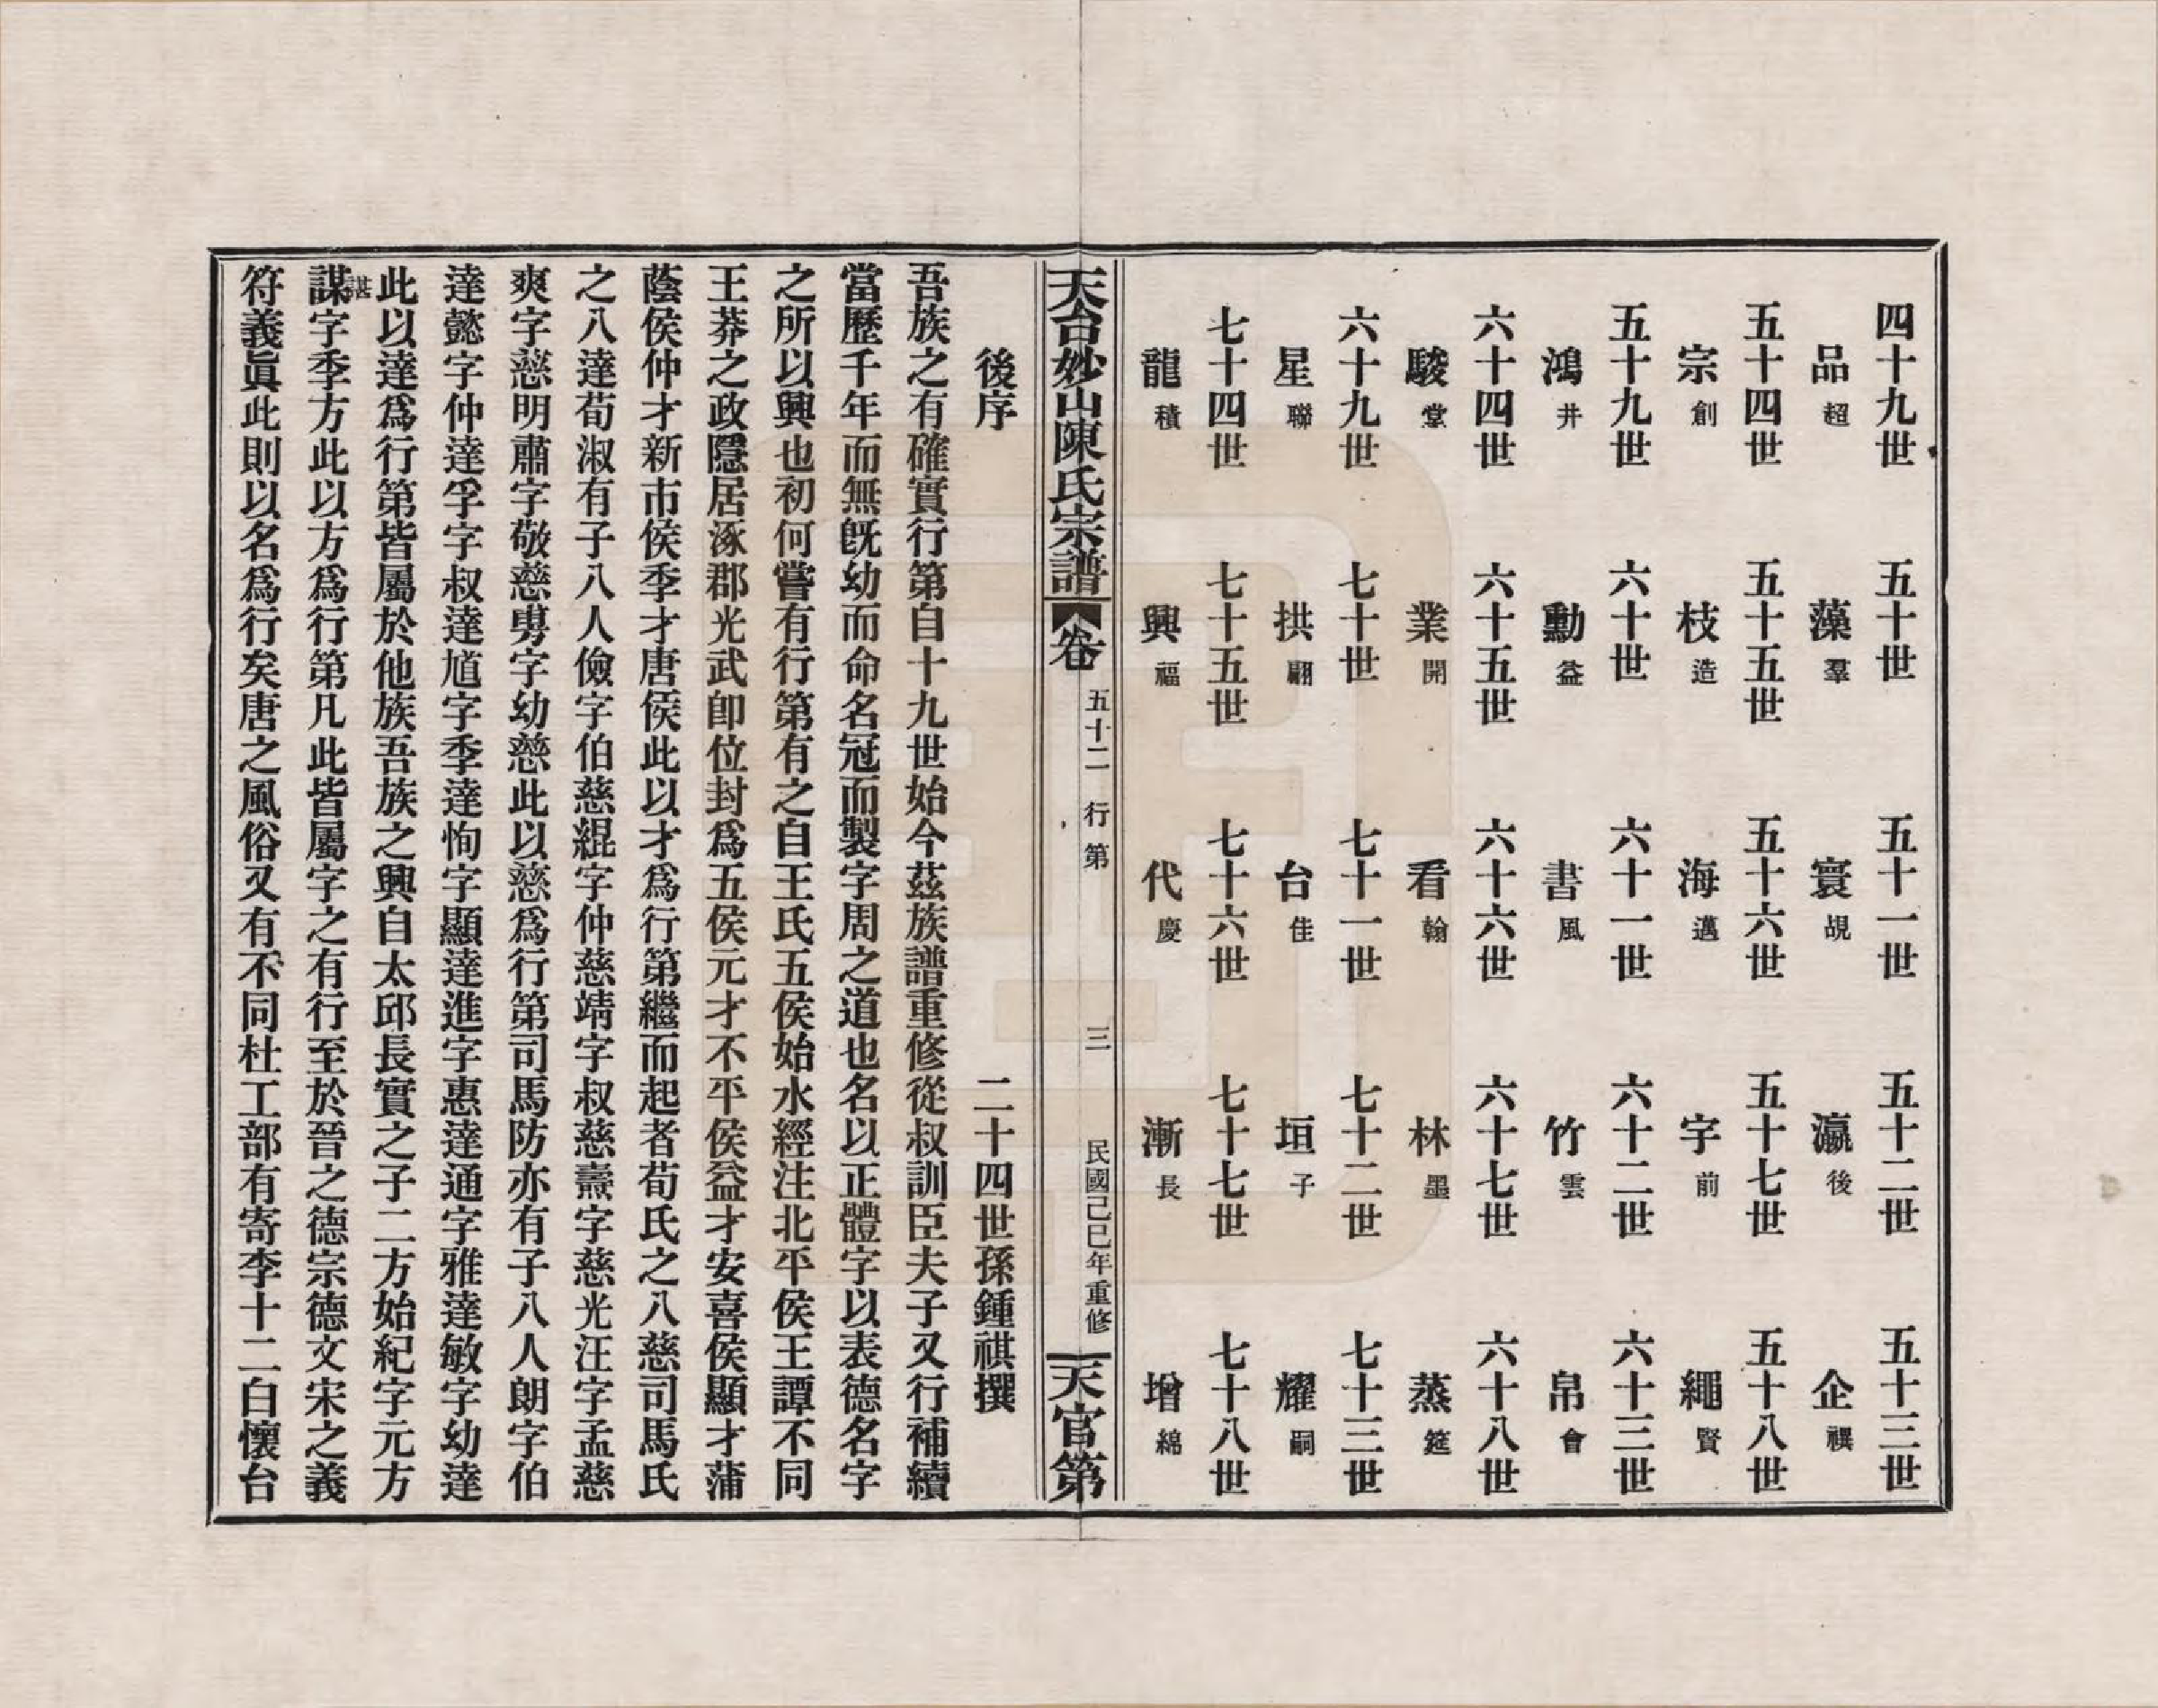 四十九世　五十世　五十一世　五十二世　五十三世
品超　藻羣　寰覘　瀛後　企禩
五十四世　五十五世　五十六世　五十七世　五十八世
宗創　枝造　海邁　字前　繩賢
五十九世　六十世　六十一世　六十二世　六十三世
鴻井　勳益　書風　竹雲　帛會
六十四世　六十五世　六十六世　六十七世　六十八世
駿堂　業開　看翰　林墨　蒸筵
六十九世　七十世　七十一世　七十二世　七十三世
星聯　拱翮　台佳　垣子　耀嗣
七十四世　七十五世　七十六世　七十七世　七十八世
龍積　興福　代慶　漸長　增綿
天台妙山陳氏宗譜　卷五十二　行第　三　民國己巳年重修　天官第
後序　二十四世孫鍾祺撰
吾族之有確實行第自十九世始今茲族譜重修從叔訓臣夫子又行補續
當歷千年而無旣幼而命名冠而製字周之道也名以正體字以表德名字
之所以興也初何嘗有行第有之自王氏五侯始水經注北平侯王譚不同
王莽之政隱居涿郡光武卽位封爲五侯元才不平侯益才安喜侯顯才蒲
蔭侯仲才新市侯季才唐侯此以才爲行第繼而起者荀氏之八慈司馬氏
之八達荀淑有子八人儉字伯慈緄字仲慈靖字叔慈燾字慈光汪字孟慈
爽字慈明肅字敬慈旉字幼慈此以慈爲行第司馬防亦有子八人朗字伯
達懿字仲達孚字叔達馗字季達恂字顯達進字惠達通字雅達敏字幼達
此以達爲行第皆屬於他族吾族之興自太邱長實之子二方始紀字元方
諶
謀字季方此以方爲行第凡此皆屬字之有行至於晉之德宗德文宋之義
符義眞此則以名爲行矣唐之風俗又有不同杜工部有寄李十二白懷台